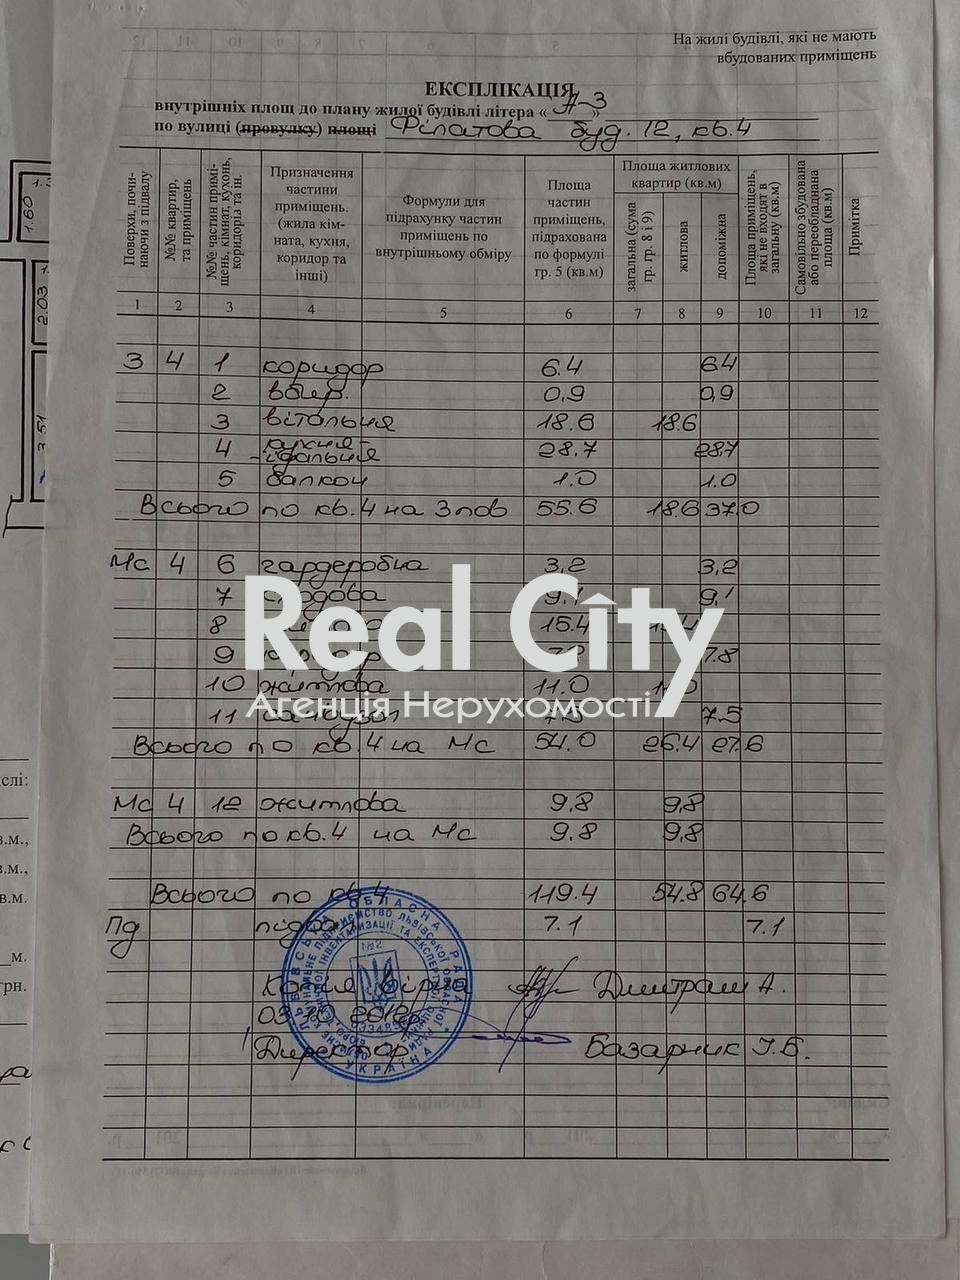 На жилі будівлі, які не мають
вбудованих приміщень
ЕКСПЛІКАЦІЯ
внутрішніх площ до плану жилої будівлі літера « А-3 »
по вулиці (провулку) площі Філатова буд. 12, кв.4
Поверхи, починаючи з підвалу
№№ квартир, та приміщень
№№ частин приміщень, кімнат, кухонь, коридорів та ін.
Призначення частини приміщень. (жила кімната, кухня, коридор та інші)
Формули для підрахунку частин приміщень по внутрішньому обміру
Площа частин приміщень, підрахована по формулі гр. 5 (кв.м)
Площа житлових квартир (кв.м)
загальна (сума гр. гр. 8 і 9)
житлова
допоміжна
Площа приміщень, які не входят в загальну (кв.м)
Самовільно збудована або переобладнана площа (кв.м)
Примітка
1 2 3 4 5 6 7 8 9 10 11 12
3 4 1 коридор 6.4 6.4
2 вбир. 0,9 0,9
3 вітальня 18.6 18.6
4 кухня-їдальня 28.7 28.7
5 балкон 1.0 1.0
Всього по кв.4 на 3 пов 55.6 18.6 37.0
Мс 4 6 гардеробна 3,2 3,2
7 9.1 9,1
8 15.4
9 7.8
10 житлова 11.0
11 7.5
Всього по кв.4 на Мс 54.0 26.4 27.6
Мс 4 12 житлова 9.8 9,8
Всього по кв.4 на Мс 9.8 9,8
Всього по кв.4 119.4 54.8 64.6
Пд підвал 7.1 7.1
Копія вірна Дмитраш А.
03.10.2012р
Директор Базарник І.Б.
Real City
Агенція Нерухомості
№2
УКРАЇНА
1.60
2.03
3.51
слі:
в.м.,
в.м.,
в.м.
м.
грн.